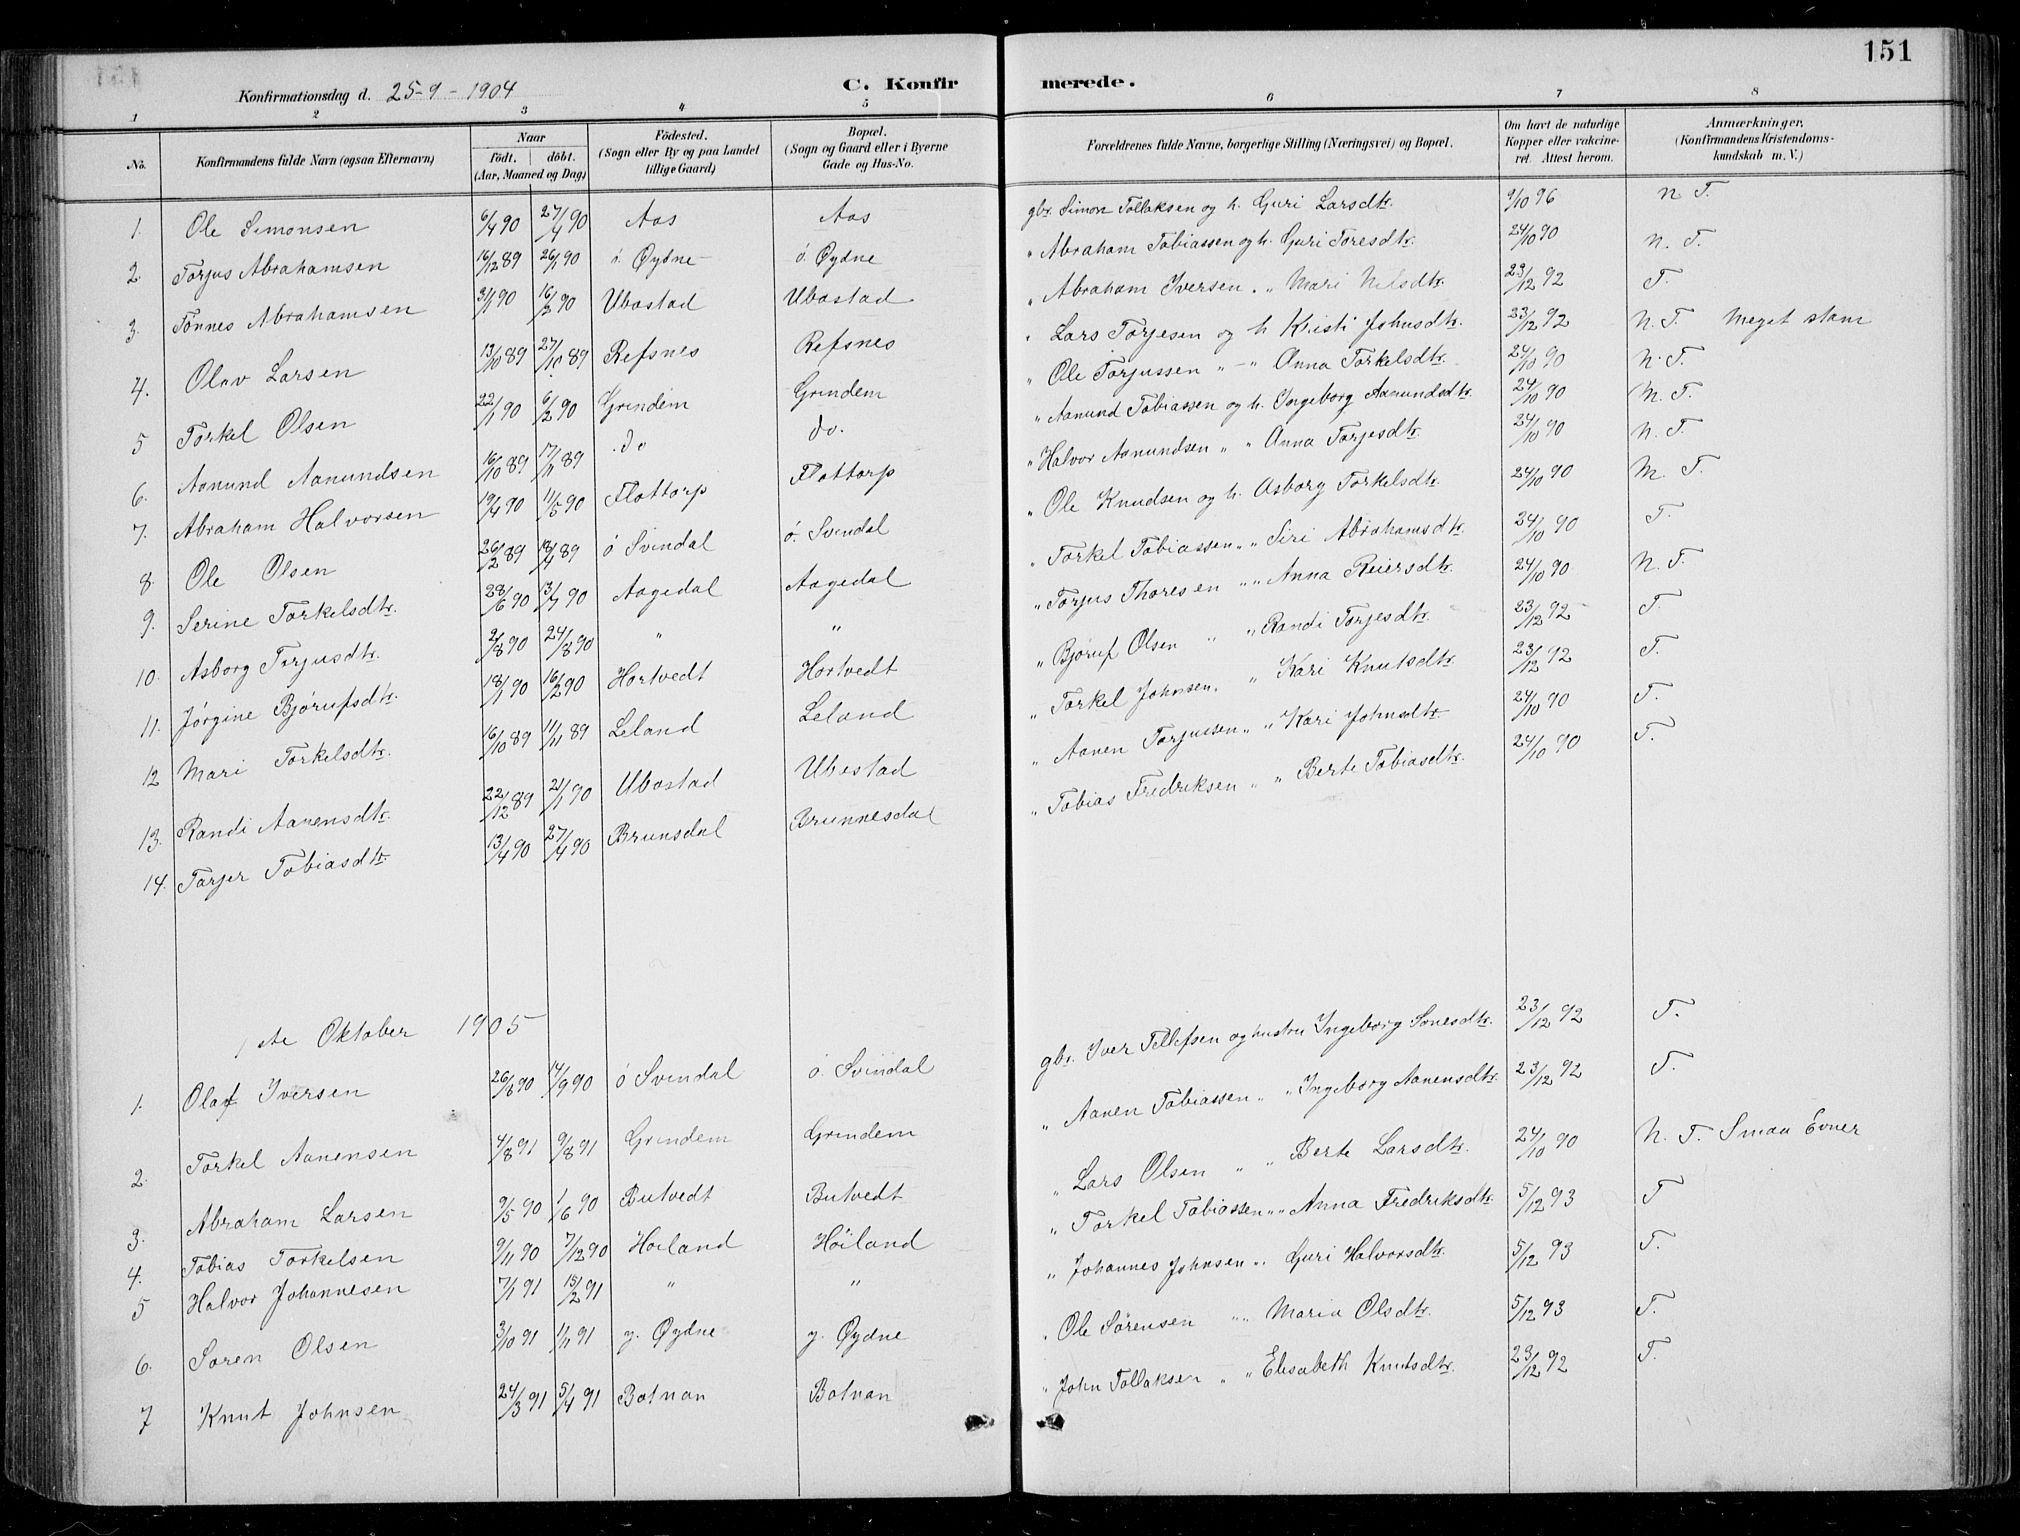 151
Konfirmationsdag d. 25-9-1904
C. Konfirmerede.
1 2 3 4 5 6 7 8
No. Konfirmandens fulde Navn (ogsaa Efternavn) Naar födt. döbt. (Aar, Maaned og Dag) Födested. (Sogn eller By og paa Landet tillige Gaard) Bopæl. (Sogn og Gaard eller i Byerne Gade og Hus-No. Forældrenes fulde Navne, borgerlige Stilling (Næringsvei) og Bopæl. Om havt de naturlige Kopper eller vakcineret. Attest herom. Anmærkninger. (Konfirmandens Kristendomskundskab m. V.)
1. Ole Simonsen 6/4 90 27/4 90 Aas Aas gbr. Simon Tollaksen og h. Guri Larsdtr. 9/10 96 N T.
2 Torjus Abrahamsen 16/12 89 26/1 90 ö. Øydne ö. Øydne " Abraham Tobiassen og h. Guri Toresdtr. 24/10 90 N. T.
3. Tønnes Abrahamsen 31/1 90 16/2 90 Ubostad Ubostad " Abraham Iversen " Mari Nilsdtr. 23/12 92 T.
4. Olav Larsen 13/10 89 27/10 89 Refsnes Refsnes " Lars Torjesen og h Kristi Johnsdtr. 23/12 92 N. T. Meget stam
5 Torkel Olsen 22/1 90 6/2 90 Grindem Grindem " Ole Torjussen " - " Anna Torkelsdtr. 24/10 90 N. T.
6. Aanund Aanundsen 16/10 89 17/11 89 do do. " Aanund Tobiassen og h. Ingeborg Aanundsdtr. 24/10 90 M. T.
7. Abraham Halvorsen 19/4 90 11/5 90 Flottorp Flottorp " Halvor Aanundsen " " Anna Torjesdtr. 24/10 90 N. T.
8. Ole Olsen 26/2 89 18/4 89 ö Svindal ö. Svindal " Ole Knudsen og h. Asborg Torkelsdtr. 24/10 90 M. T.
9. Serine Torkelsdtr. 28/6 90 13/7 90 Aagedal Aagedal " Torkel Tobiassen " " Siri Abrahamsdtr. 24/10 90 T.
10. Asborg Torjusdtr. 2/8 90 24/8 90 " " " Torjus Thoresen " " Anna Reiersdtr. 24/10 90 N. T.
11. Jørgine Bjørufsdtr. 18/1 90 16/2 90 Hortvedt Hortvedt " Bjøruf Olsen " " Randi Torjesdtr. 23/12 92 T.
12 Mari Torkelsdtr. 16/10 89 11/11 89 Leland Leland " Torkel Johnsen. " Kari Knutsdtr. 23/12 92 T.
13. Randi Aanensdtr. 22/12 89 21/1 90 Ubostad Ubostad " Aanen Torjussen " " Kari Johnsdtr 24/10 90 T.
14. Torjer Tobiasdtr 13/4 90 27/4 90 Brunsdal Brunnesdal " Tobias Fredriksen " " Berte Tobiasdtr. 24/10 90 T.
1ste Oktober 1905
1. Olaf Iversen 26/8 90 14/9 90 ö Svindal ö. Svindal gbr. Iver Tellefsen og hustru Ingeborg Sonesdtr. 23/12 92 T.
2. Torkel Aanensen 4/8 91 9/8 91 Grindem Grindem " Aanen Tobiassen " " Ingeborg Aanensdtr. 23/12 92 T.
3. Abraham Larsen 9/5 90 1/6 90 Butvedt Butvedt " Lars Olsen " " Berte Larsdtr. 24/10 90 N. T. Smaa Evner
4. Tobias Torkelsen 9/11 90 7/12 90 Höiland Höiland " Torkel Tobiassen " " Anna Fredriksdtr. 5/12 93 T
5 Halvor Johannesen 7/1 91 15/2 91 " " " Johannes Johnsen " " Guri Halvorsdtr. 5/12 93 T.
6. Søren Olsen 3/10 91 1/11 91 y. Øydne y. Øydne " Ole Sørensen " " Maria Olsdtr. 5/12 93 T.
7 Knut Johnsen 24/3 91 5/4 91 Botnan Botnan " John Tollaksen " " Elisabeth Knutsdtr. 23/12 92 T.